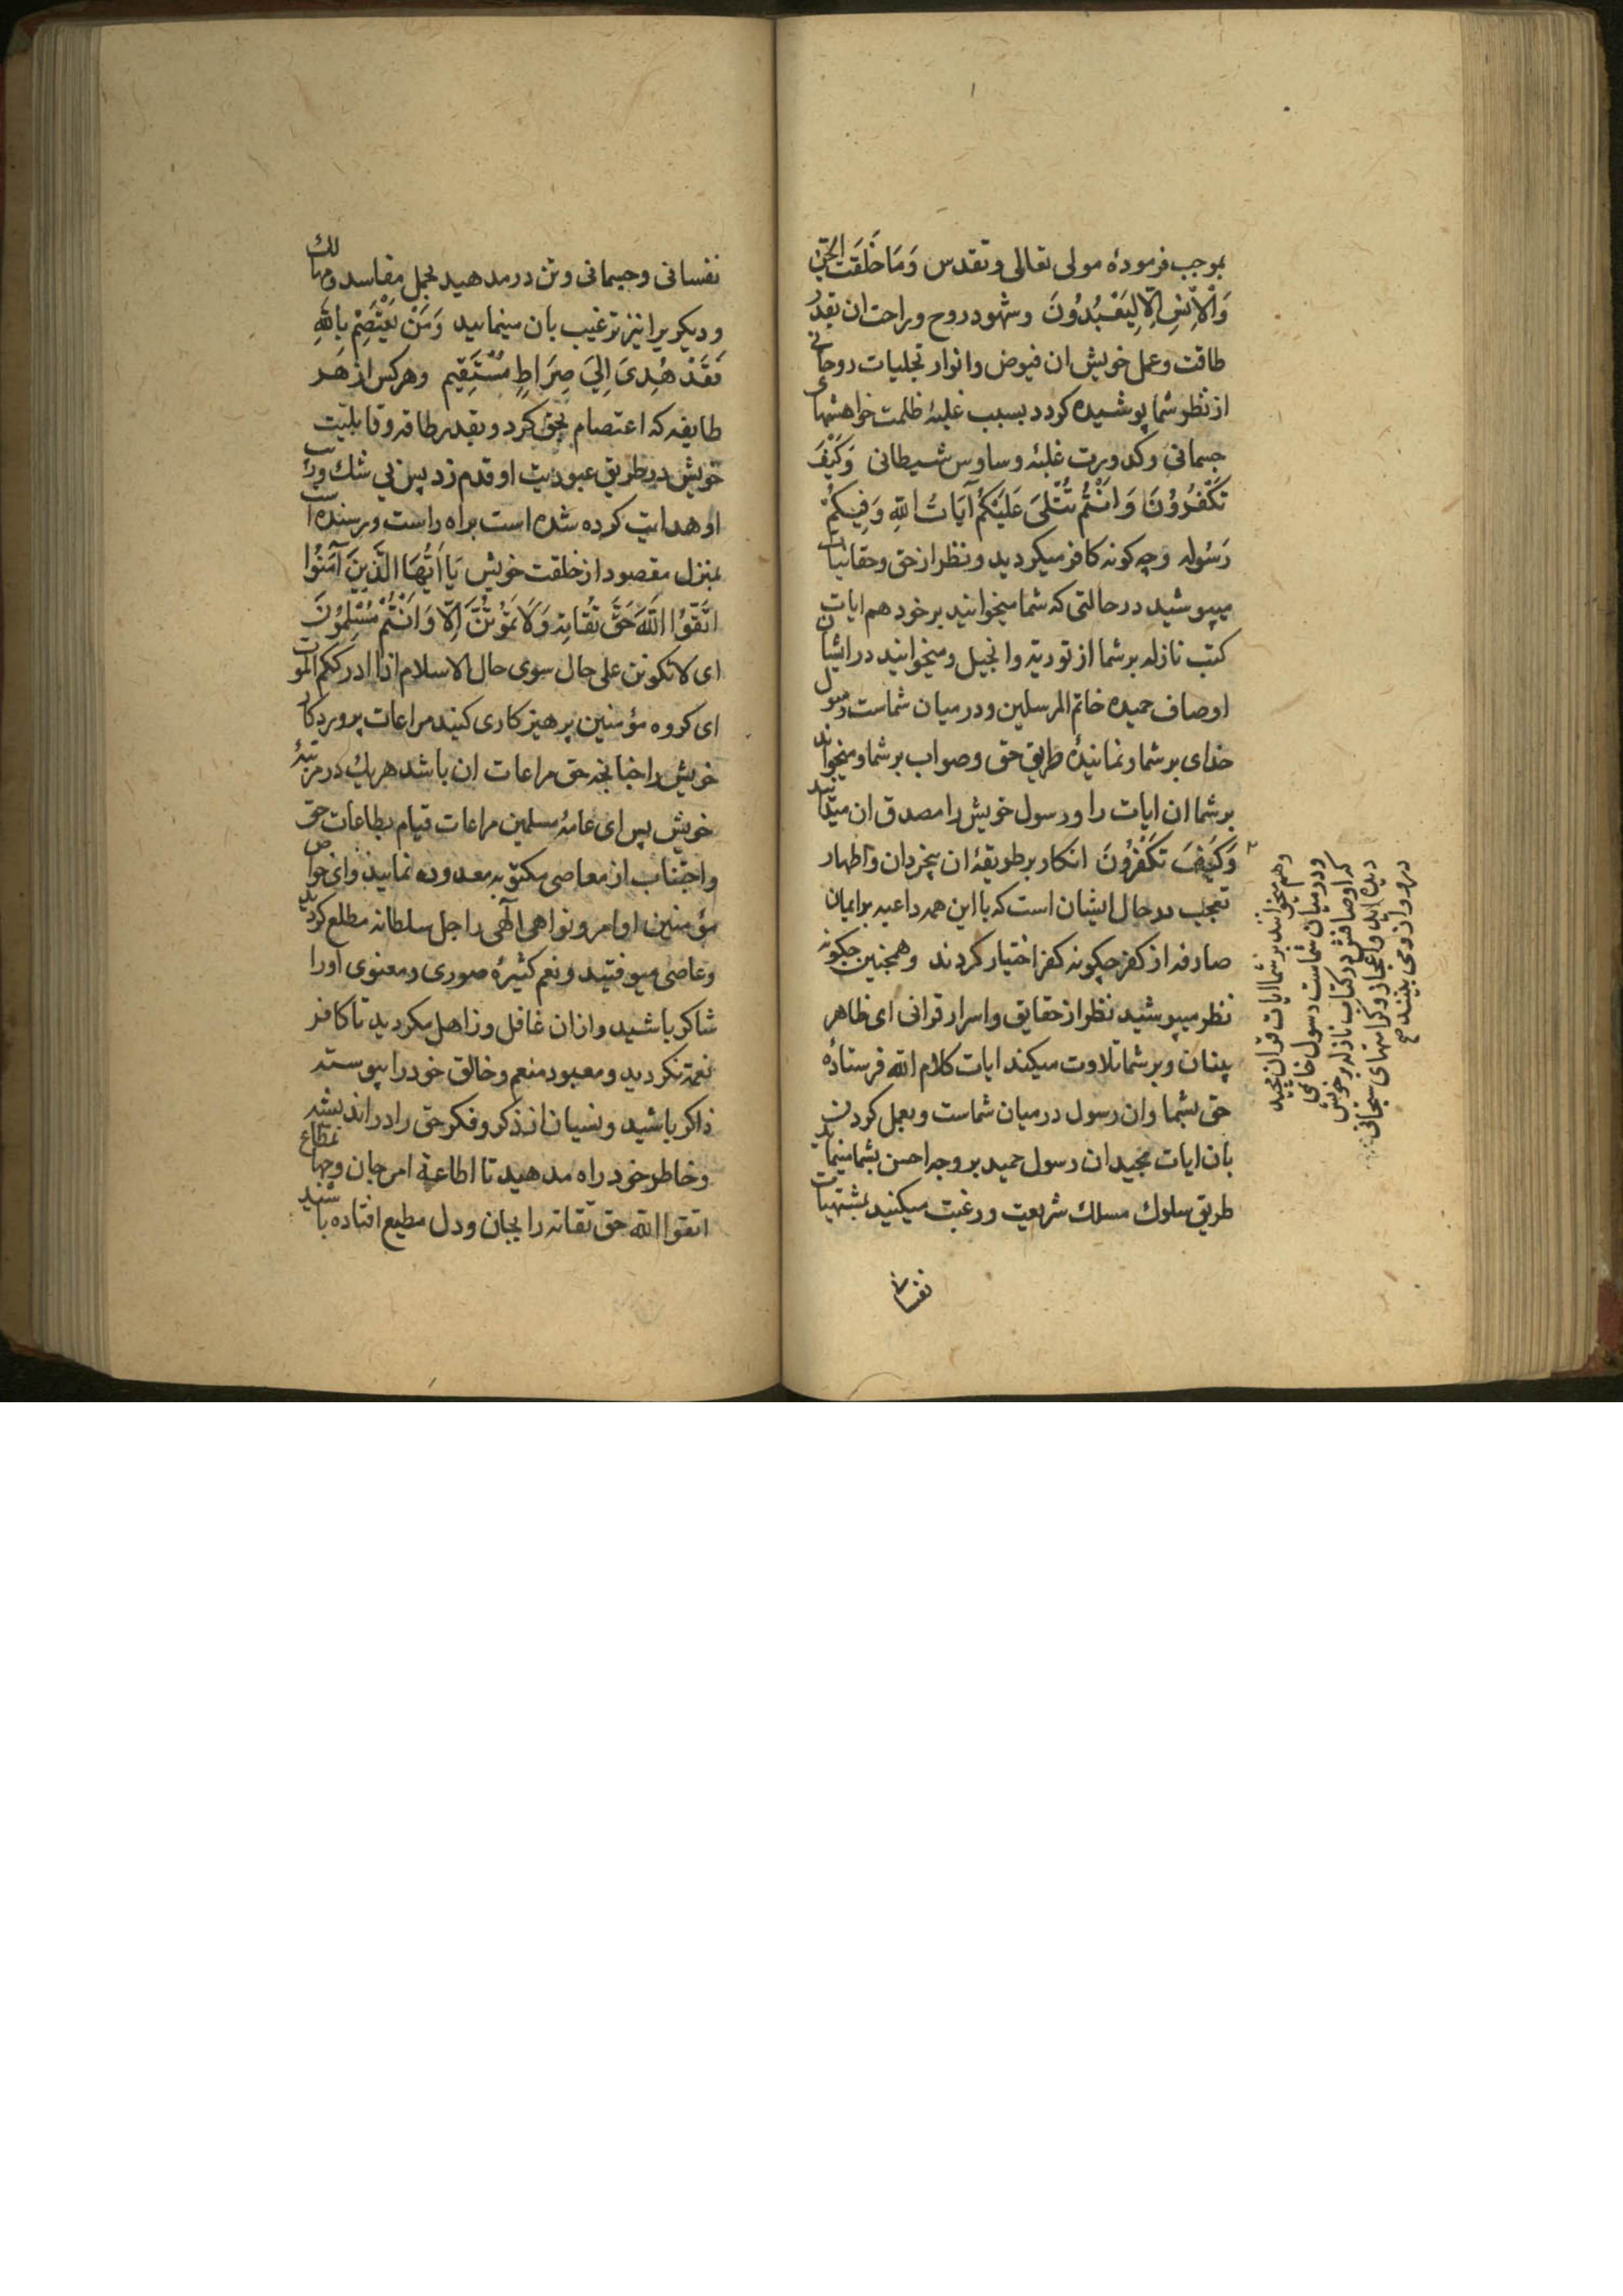 بموجب فرمودهٔ مولی تعالی و تقدس وَمَا خَلَقْتُ الْجِنَّ
وَالْاِنْسَ اِلَّا لِيَعْبُدُونَ وشهود روح وراحت ان بقدر
طاقت وعمل خویش ان فیوض وانوار تجلیات روحانی
از نظر شما پوشیده کردد بسبب غلبهٔ ظلمت خواهشهای
جسمانی وکدورت غلبهٔ وساوس شیطانی وَكَيْفَ
تَكْفُرُونَ وَاَنْتُمْ تُتْلَىٰ عَلَيْكُمْ آيَاتُ اللهِ وَفِيكُمْ
رَسُولُه وچه کونه کافر میکردید ونظر از حق وحقانیات
میپوشید در حالتی که شما میخوانید بر خود هم ایات
کتب نازله بر شما از توریة وانجیل ومیخوانید در ایشان
اوصاف حمیده خاتم المرسلین ودر میان شماست رسول
خدای بر شما ونمایندهٔ طریق حق وصواب بر شما ومیخواند
بر شما ان ایات را ورسول خویش را مصدق ان میدانید
وَكَيْفَ تَكْفُرُونَ انکار بر طریقهٔ ان بیخردان واظهار
تعجب در حال ایشان است که با این همه داعیه بر ایمان
صارفه از کفر چکونه کفر اختیار کردند وهمچنین چکونه
نظر میپوشید نظر از حقایق واسرار قرانی ای ظاهر
بینان وبر شما تلاوت میکند ایات کلام الله فرستادهٔ
حق بشما وان رسول در میان شماست وبعمل کردن
بان ایات مجید ان رسول حمید بر وجه احسن بشما مینماید
طریق سلوك مسلك شریعت ورغبت میکنید بمشتهیات
نفسانی
وهم میخوانند بر شما ایات قران مجید
ودر میان شماست رسول خدای
که اوصافش در کتاب نازله بر خویش
دیده اید واعجاز وکرامتهای سبحانی
در ووازوی بینید صح
نفسانی وجسمانی وتن در مدهید بحمل مفاسد ومهالك
ودیکری را نیز ترغیب بان مینمایید وَمَنْ يَعْتَصِمْ بِاللهِ
فَقَدْ هُدِىَ اِلىَ صِرَاطٍ مُسْتَقِيمٍ وهر کس از هر
طایفه که اعتصام بحق کرد وبقدر طاقه وقابلیت
خویش در طریق عبودیت او قدم زد پس بی شك وریب
او هدایت کرده شده است براه راست ورسنده است
بمنزل مقصود از خلقت خویش يَا اَيُّهَا الَّذِينَ آمَنُوا
اتَّقُوا اللهَ حَقَّ تُقَاتِهِ وَلَا تَمُوتُنَّ اِلَّا وَاَنْتُمْ مُسْلِمُونَ
ای لا تکونن علی حال سوی حال الاسلام اذا ادرککم الموت
ای کروه مؤمنین پرهیز کاری کنید مراعات پروردکار
خویش را چنانچه حق مراعات ان باشد هریك در مرتبهٔ
خویش پس ای عامهٔ مسلمین مراعات قیام بطاعات حق
واجتناب از معاصی مکتوبه معدوده نمایید وای خواص
مؤمنین اوامر ونواهی الهی را جل سلطانه مطلع کردید
وعاصی میوفتید ونعم کثیرهٔ صوری ومعنوی اورا
شاکر باشید وازان غافل وزاهل مکردید تا کافر
نعمة نکردید ومعبود منعم وخالق خود را پیوسته
ذاکر باشید ونسیان از ذکر وفکر حق را در اندیشه
وخاطر خود راه مدهید تا اطاعة امر جان وجهان مطاع
اتقوا الله حق تقاته را بجان ودل مطیع افتاده باشید